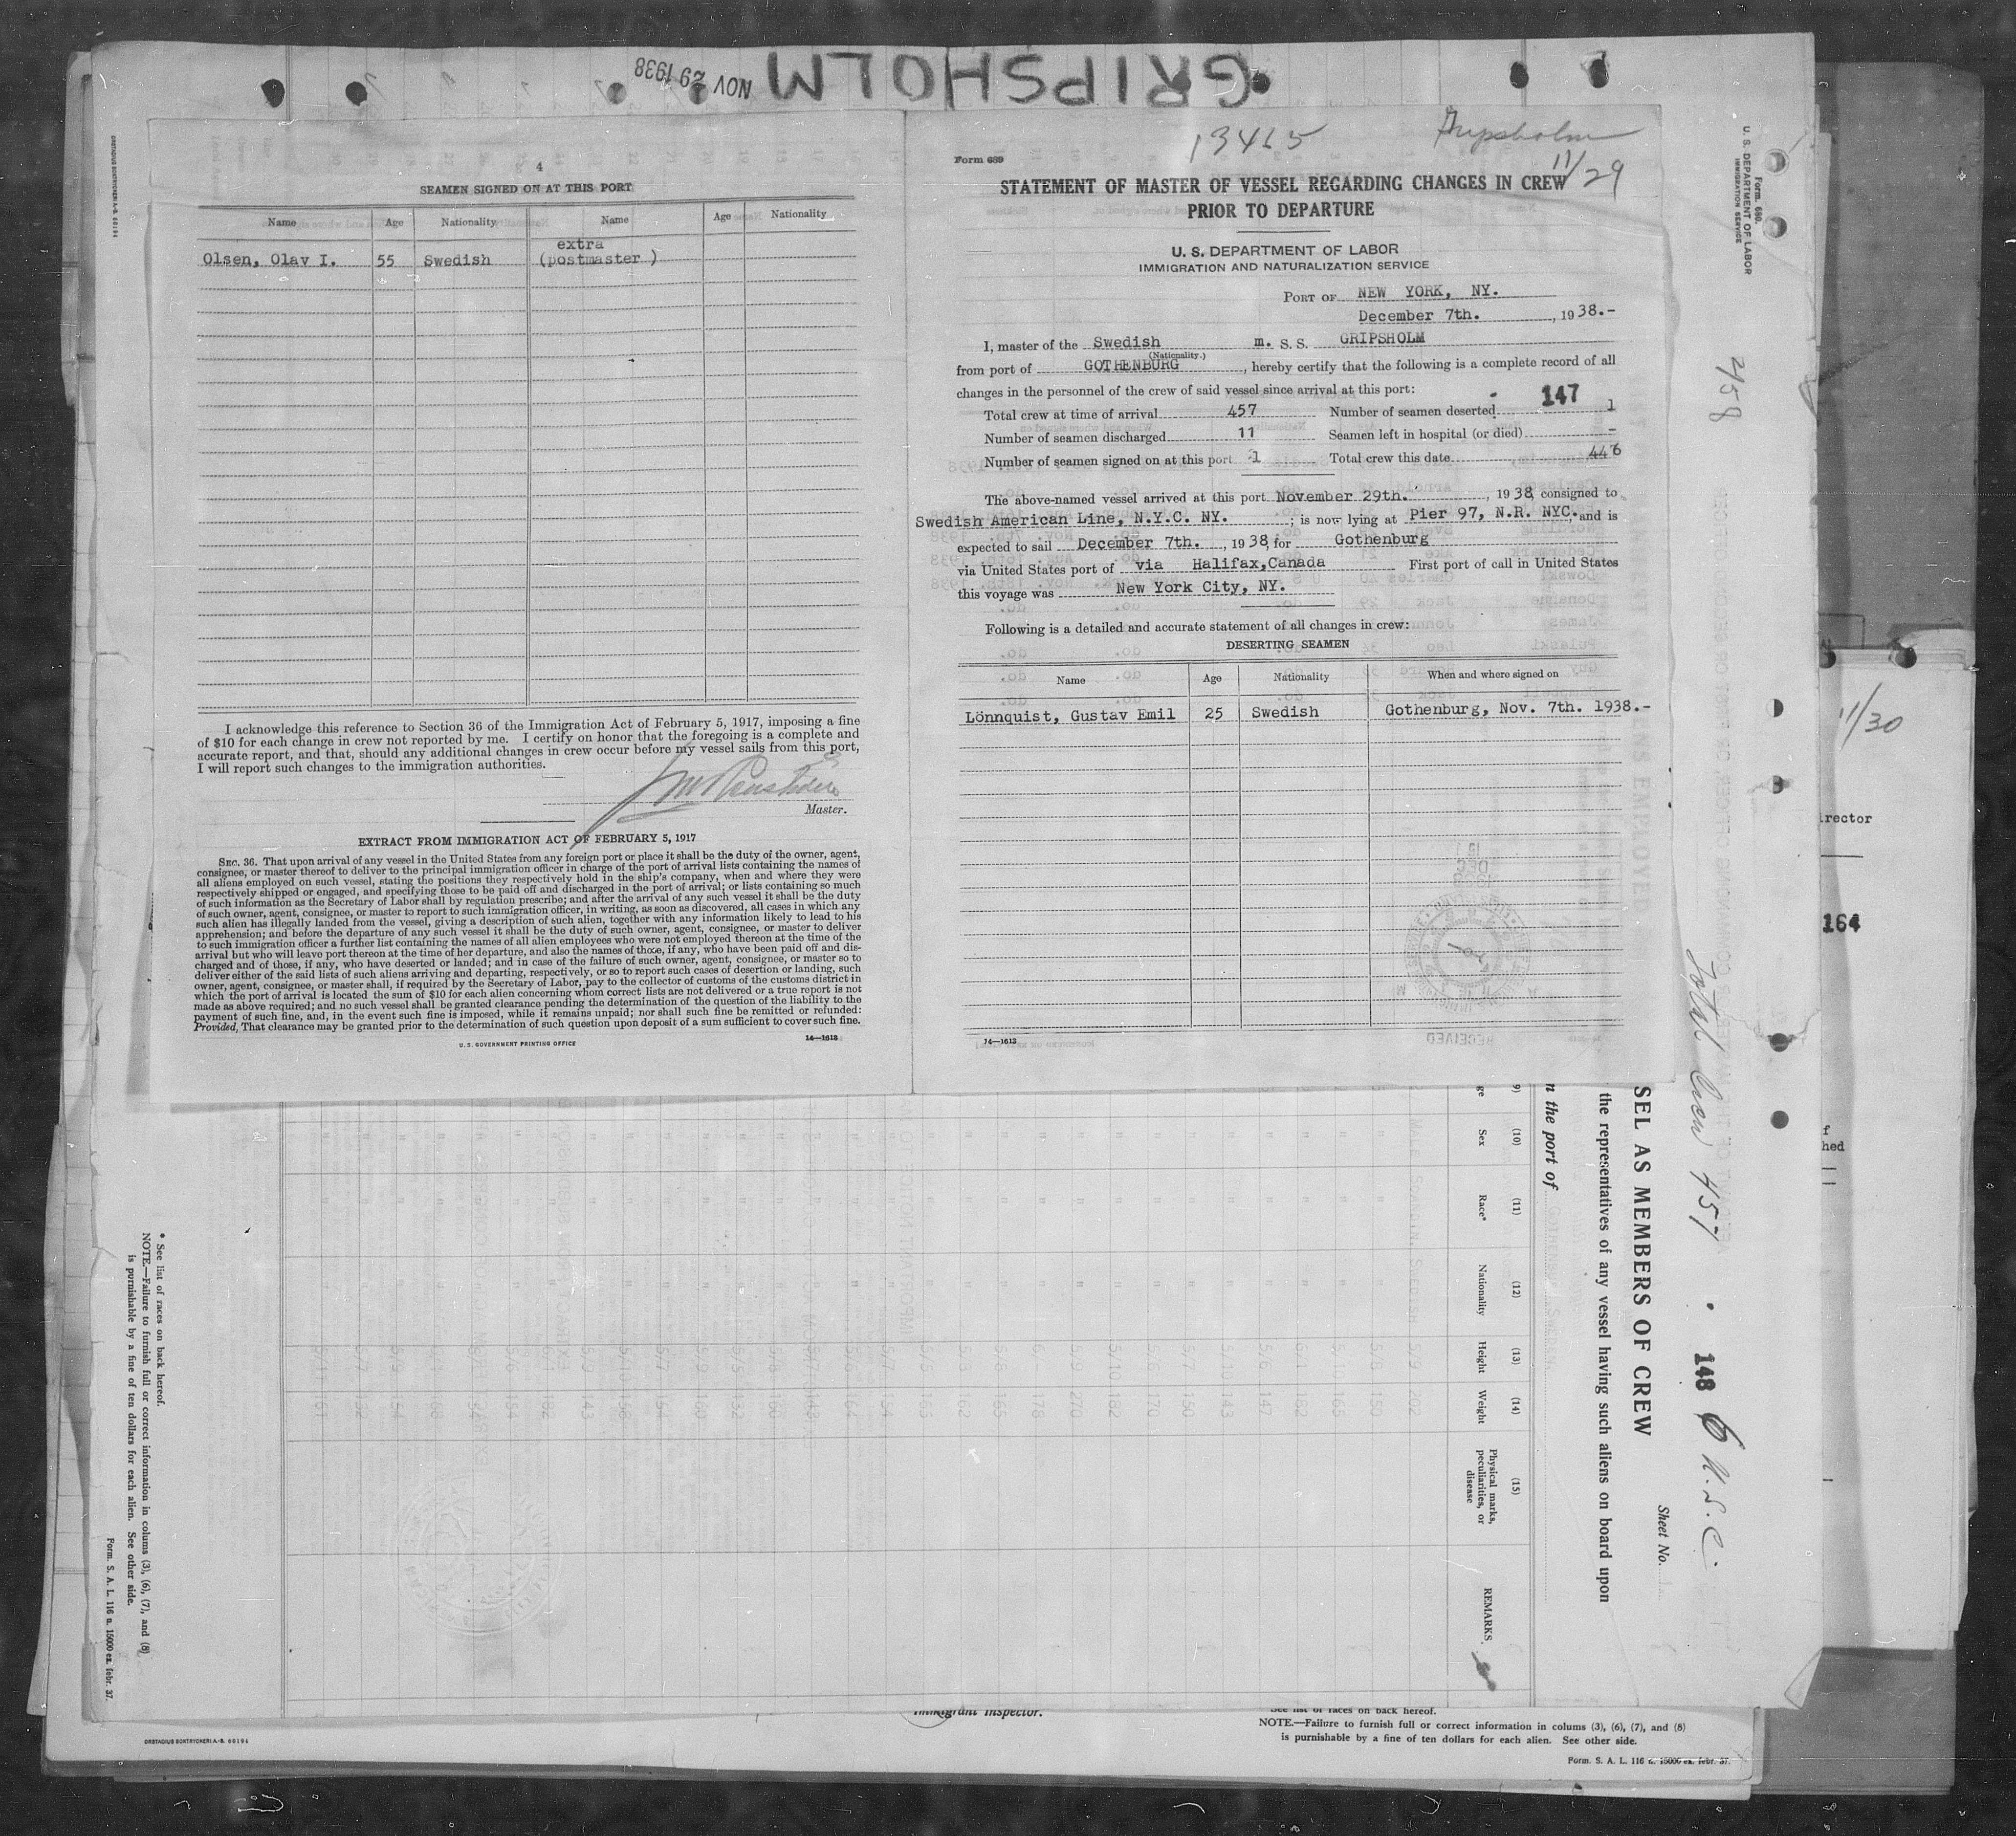 GRIPSHOLM
NOV 29 1938
4
SEAMEN SIGNED ON AT THIS PORT
Name Age Nationality Name Age Nationality
extra
Olsen, Olav I. 55 Swedish (postmaster )
I acknowledge this reference to Section 36 of the Immigration Act of February 5, 1917, imposing a fine
of $10 for each change in crew not reported by me. I certify on honor that the foregoing is a complete and
accurate report, and that, should any additional changes in crew occur before my vessel sails from this port,
I will report such changes to the immigration authorities.
Master.
EXTRACT FROM IMMIGRATION ACT OF FEBRUARY 5, 1917
SEC. 36. That upon arrival of any vessel in the United States from any foreign port or place it shall be the duty of the owner, agent,
consignee, or master thereof to deliver to the principal immigration officer in charge of the port of arrival lists containing the names of
all aliens employed on such vessel, stating the positions they respectively hold in the ship's company, when and where they were
respectively shipped or engaged, and specifying those to be paid off and discharged in the port of arrival; or lists containing so much
of such information as the Secretary of Labor shall by regulation prescribe; and after the arrival of any such vessel it shall be the duty
of such owner, agent, consignee, or master to report to such immigration officer, in writing, as soon as discovered, all cases in which any
such alien has illegally landed from the vessel, giving a description of such alien, together with any information likely to lead to his
apprehension; and before the departure of any such vessel it shall be the duty of such owner, agent, consignee, or master to deliver
to such immigration officer a further list containing the names of all alien employees who were not employed thereon at the time of the
arrival but who will leave port thereon at the time of her departure, and also the names of those, if any, who have been paid off and dis-
charged and of those, if any, who have deserted or landed; and in case of the failure of such owner, agent, consignee, or master so to
deliver either of the said lists of such aliens arriving and departing, respectively, or so to report such cases of desertion or landing, such
owner, agent, consignee, or master shall, if required by the Secretary of Labor, pay to the collector of customs of the customs district in
which the port of arrival is located the sum of $10 for each alien concerning whom correct lists are not delivered or a true report is not
made as above required; and no such vessel shall be granted clearance pending the determination of the question of the liability to the
payment of such fine, and, in the event such fine is imposed, while it remains unpaid; nor shall such fine be remitted or refunded:
Provided, That clearance may be granted prior to the determination of such question upon deposit of a sum sufficient to cover such fine.
U. S. GOVERNMENT PRINTING OFFICE 14—1613
13465 Gripsholm
11/29
Form 689
STATEMENT OF MASTER OF VESSEL REGARDING CHANGES IN CREW
PRIOR TO DEPARTURE
U. S. DEPARTMENT OF LABOR
IMMIGRATION AND NATURALIZATION SERVICE
PORT OF NEW YORK, NY.
December 7th. , 1938.-
I, master of the Swedish m. S. S. GRIPSHOLM
(Nationality.)
from port of GOTHENBURG , hereby certify that the following is a complete record of all
changes in the personnel of the crew of said vessel since arrival at this port:
147
Total crew at time of arrival 457 Number of seamen deserted 1
Number of seamen discharged 11 Seamen left in hospital (or died) -
Number of seamen signed on at this port 1 Total crew this date 446
The above-named vessel arrived at this port November 29th. , 1938, consigned to
Swedish American Line, N.Y.C. NY. ; is now lying at Pier 97, N.R. NYC. and is
expected to sail December 7th. , 1938, for Gothenburg
via United States port of via Halifax,Canada First port of call in United States
this voyage was New York City, NY.
Following is a detailed and accurate statement of all changes in crew:
DESERTING SEAMEN
Name Age Nationality When and where signed on
Lönnquist, Gustav Emil 25 Swedish Gothenburg, Nov. 7th. 1938.-
14—1613
RECEIVED
Form 680.
U. S. DEPARTMENT OF LABOR
IMMIGRATION SERVICE
2/58
Total Crew 457
148
6 U.S.C.
Sheet No. 1
SEL AS MEMBERS OF CREW
the representatives of any vessel having such aliens on board upon
n the port of
9) (10) (11) (12) (13) (14) (15)
ge Sex Race* Nationality Height Weight Physical marks, peculiarities, or disease REMARKS
* See list of races on back hereof.
NOTE.—Failure to furnish full or correct information in colums (3), (6), (7), and (8)
is purnishable by a fine of ten dollars for each alien. See other side.
Form. S. A. L. 116 n. 15000 ex. febr. 37.
11/30
irector
164
hed
Immigrant Inspector.
See list of races on back hereof.
NOTE.—Failure to furnish full or correct information in colums (3), (6), (7), and (8)
is purnishable by a fine of ten dollars for each alien. See other side.
Form. S. A. L. 116 15000 ex. febr. 37.
ORSTADIUS BOKTRYCKERI A.-B. 60194